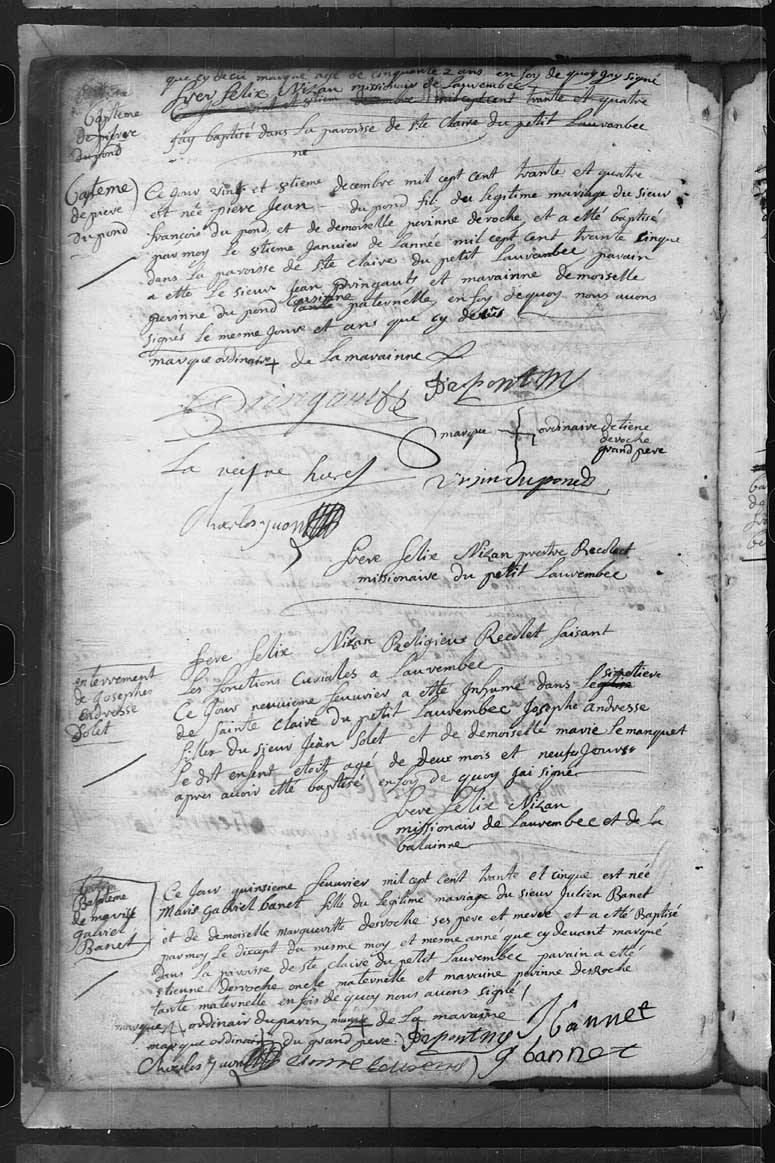 que cy decu marque agé de cinquante 2 ans en foy de quoy Jay signé
frere felix Nizan missionair de Lauvembec
vint et stiem decembre mil cept cent trante et quatre
Bapteme
de pierre
dupond
Jay baptisé dans La paroisse de ste Claire du petit Lauvanbec
ne
bapteme
de piere
du pond
Ce jour vint et 8tieme decembre mil cept cent trante et quatre
est née piere Jean du pond fils du legitime mariage du sieur
francois du pond et de demoiselle perinne deroche et a etté baptisé
par moy le 8tieme Janvier de Lannée mil cept cent trante cinque
dans La paroisse de ste Claire du petit Lauvanbec parain
a ette Le sieur Jean Gringault et marainne demoiselle
perinne du pond cousinne tante paternelle, en foy de quoy nous avons
signés le mesme Jour et ans que cy desus
marque ordinaire + de La marainne
Gringault Dupont
marque + ordinaire detiene
deroche
grand pere
La veifve harel dupond
Charles yuon
frere felix Nizan prestre Recolect
missionaire du petit Lauvembec
frere felix Nizan Religieux Recolet faisant
Les fonctions Curiales a Lauvembec
enterrement
de Josephe
endresse
Solet
Ce Jour neuvieme feuvrier a etté Inhumé dans le sipetiere
de Sainte Claire du petit Lauvembec Josephe andresse
filles du sieur Jean Solet et de demoiselle marie Lemanquet
Le dit enfant etoit agé de deux mois et neufs Jours
apres avoir etté baptisé en foy de quoy jai signé
frere felix Nizan
missionair de Lauvembec et de la
balainne
Bapteme
de marie
Gabriel
Banet
Ce Jour quinsieme feuvrier mil cept cent trante et cinque est née
Marie Gabriel banet fille du legitime mariage du sieur Julien Banet
et de demoiselle margueritte deroche ses pere et merre et a etté Baptisé
par moy le dicept du mesme moy et mesme anné que cy devant marqué
dans La paroise de ste Claire du petit Lauvembec parain a etté
etienne deroche oncle maternelle et maraine perinne desRoche
tante maternelle en fois de quoy nous avons signé
marque ordinair du parin marque + de La maraine
marque ordinair du grand pere Dupont JBannet
Charles yuon g bannet